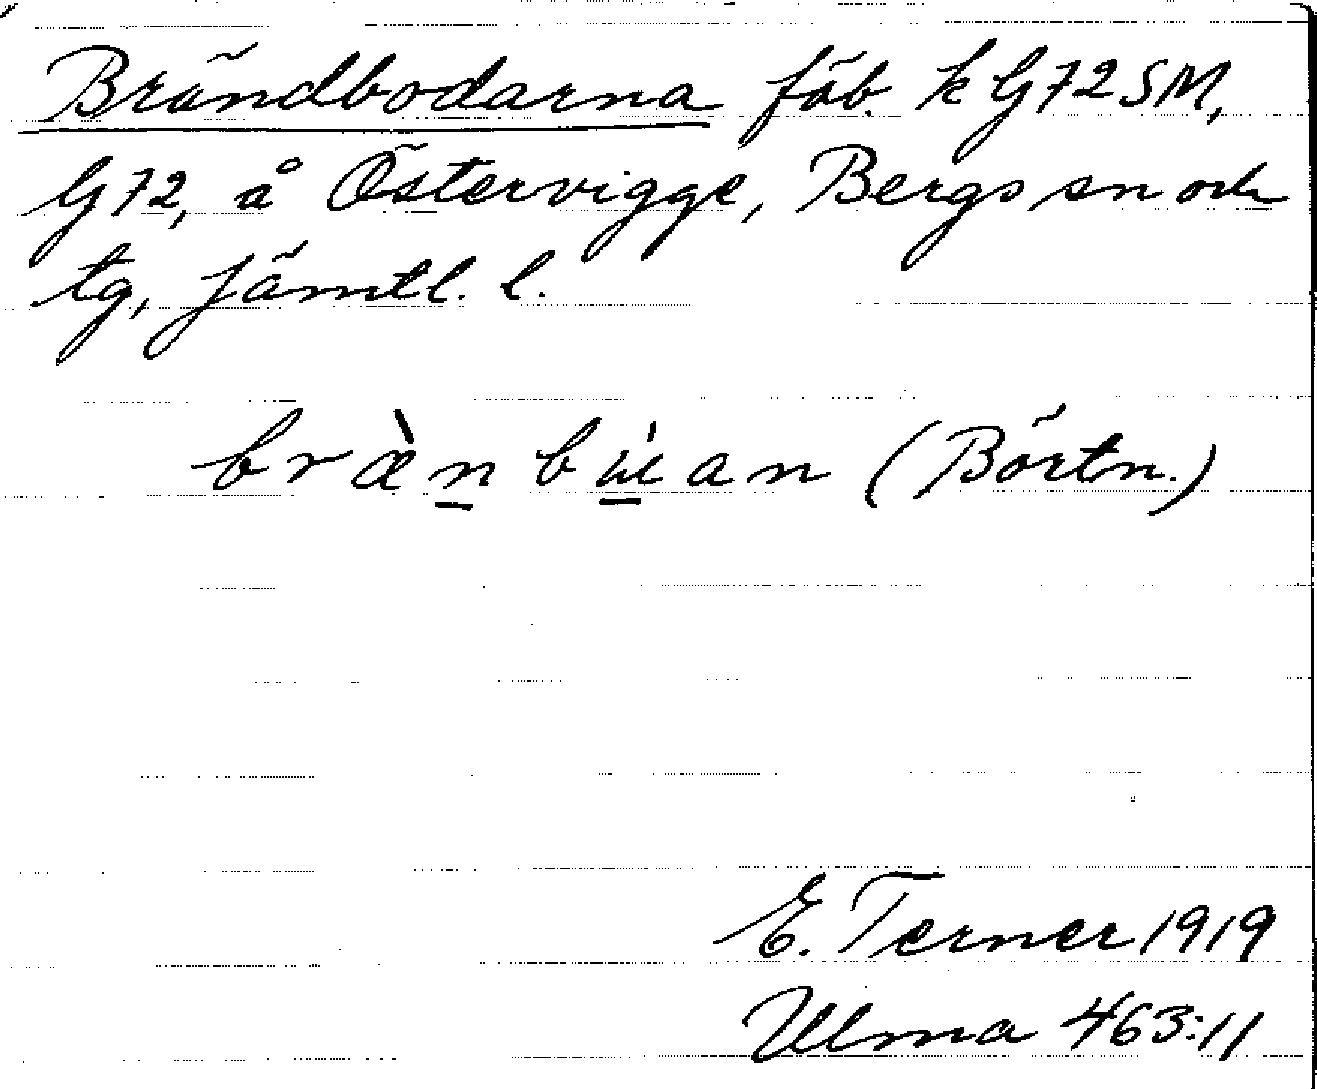 Brändbodarna fäb. k G72SM,
G72, å Östervigge, Bergs sn och
tg, Jämtl. l.
bræ̀n̲ bu̲̇́an (Börtn.)
E. Terner 1919
Ulma 463:11